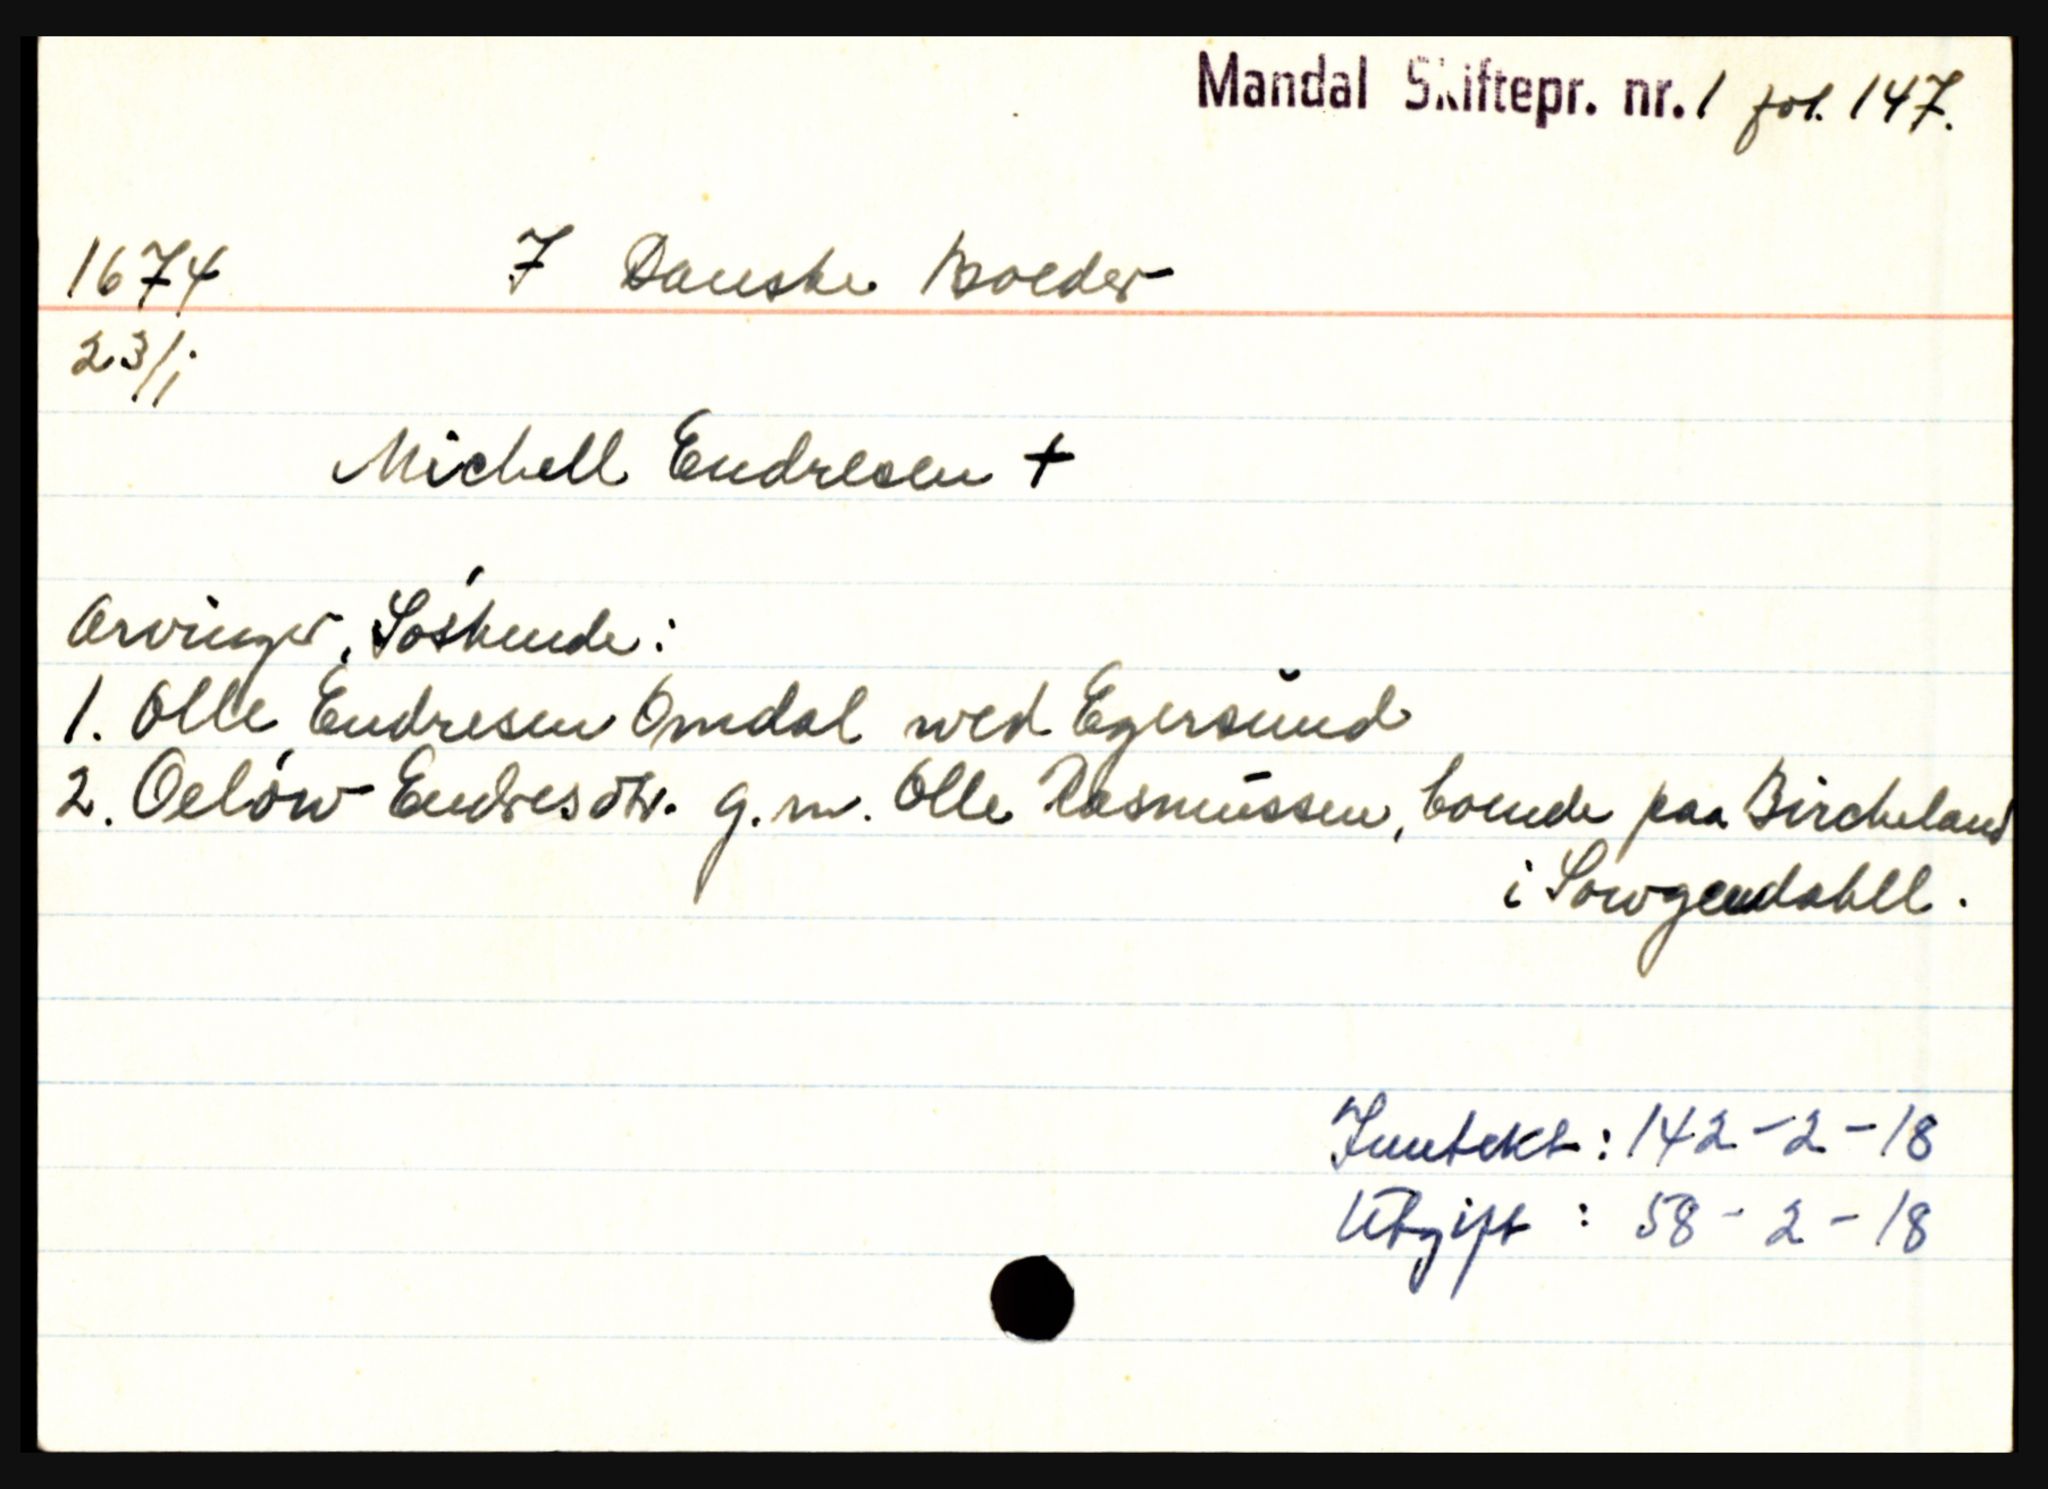 Mandal Skiftepr. nr. 1 fol. 147.
1674 7 Danske Boeder
23/1
Michell Endresen +
Arvinger, Söskende:
1. Olle Endresen Omdal wed Egersund
2. Oelöw Endresdtr. g.m. Olle Rasmussen, boende paa Bircheland
i Sowgendahll.
Inntekt: 142-2-18
Utgift: 58-2-18